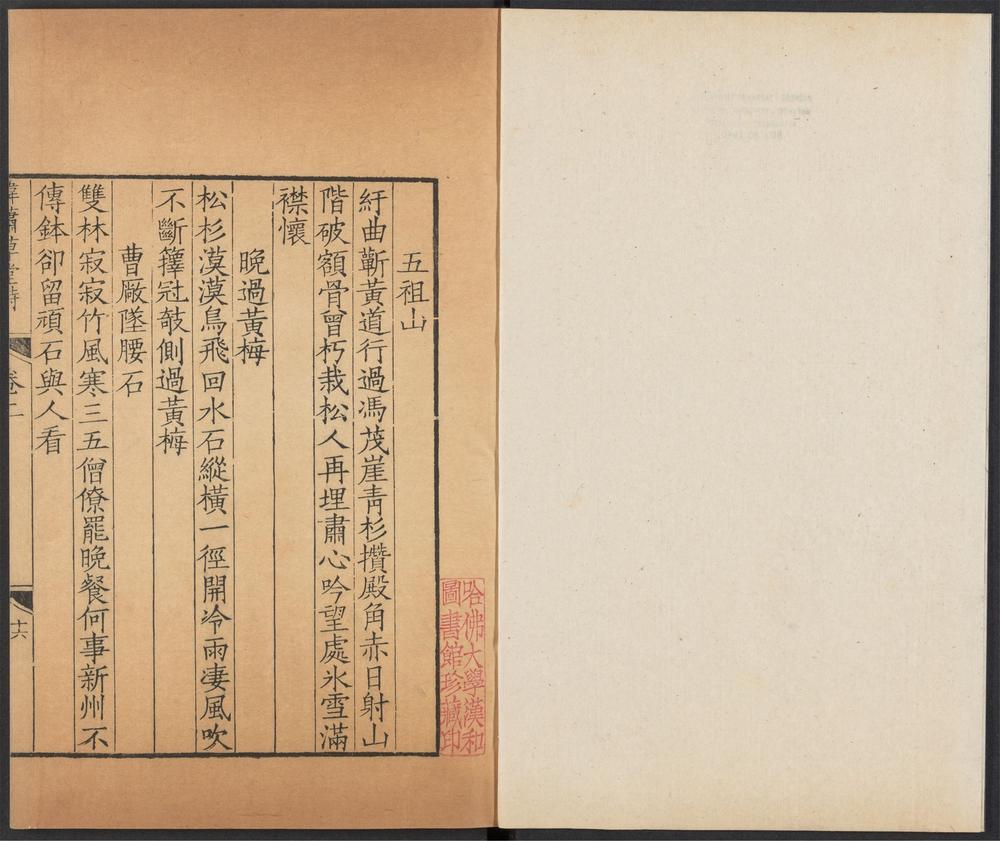 五祖山
紆曲蘄黃道行過馮茂崖青杉攢殿角赤日射山
階破額骨曾朽栽松人再埋肅心吟望處氷雪滿
襟懷
晚過黃梅
松杉漠漠鳥飛回水石縱橫一徑開冷雨淒風吹
不斷籜冠攲側過黃梅
曹厰墜腰石
雙林寂寂竹風寒三五僧僚罷晚餐何事新州不
傳鉢卻留頑石與人看
卷二
十六
哈佛大學漢和
圖書館珍藏印